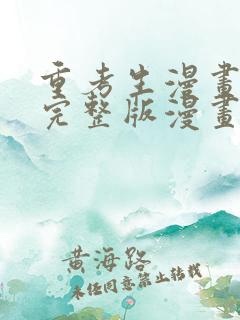 重考生漫畫
完整版漫畫
黄海路
未经同意禁止转载